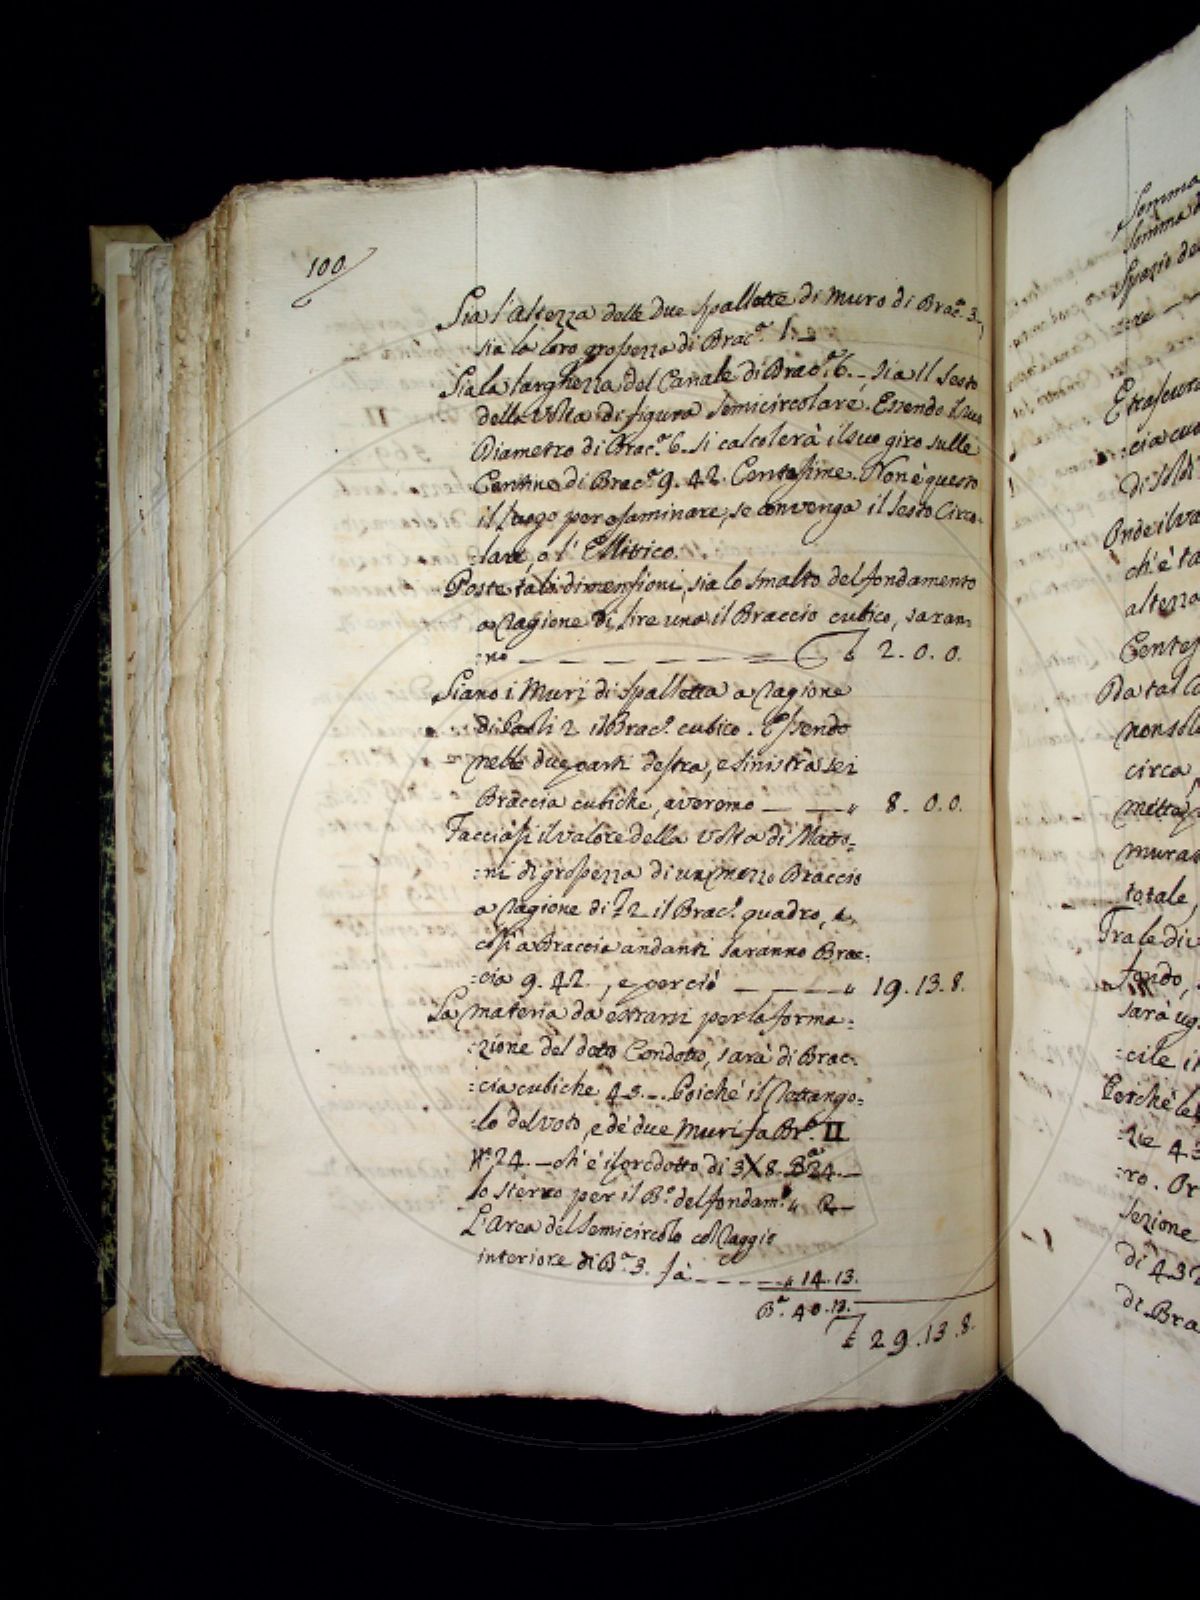 100
Sia l'Altezza delle due Spallette di Muro di Brac.ª 3.-,
sia la loro grossezza di Brac.ª 1.-
Sia la larghezza del Canale di Brac.ª 6.- sia il Sesto
della Volta di figura Semicircolare. Essendo il suo
Diametro di Brac.ª 6. si calcolerà il suo giro sulle
Centine di Brac.ª 9. 42. Centesime. Non è questo
il luogo per esaminare, se convenga il Sesto Circo-
:lare, o l'Ellitico.
Poste tali dimensioni, sia lo smalto del fondamento
a ragione di lire una il Braccio cubico, saran:
:no — — — — — — " 2. 0. 0.
Siano i Muri di Spalletta a ragione
di Paoli 2 il Brac.º cubico. Essendo
nelle due parti destra, e sinistra sei
Braccia cubiche, averemo — — " 8. 0. 0.
Facciasi il valore della Volta di Matto:
:ni di grossezza di un mezzo Braccio
a ragione di 2 il Brac.º quadro, e,
così a Braccia andanti saranno Brac:
:cia 9. 42. , e perciò — — — " 19. 13. 8.
La materia da estrarsi per la forma:
:zione del detto Condotto, sarà di Brac:
:cia cubiche 43.-. Poichè il Rettango:
:lo del voto, e de' due Muri fa Br.ª II
Nº 24. — ch'è il prodotto di 3X8. 24.—
lo sterro per il B.º del fondam.º " 2—
L'Area del Semicircolo col Raggio
interiore di B.ª 3. fà — — — " 14. 13.
B.ª 40. 13.
£ 29. 13. 8.
Somma
Somma d
Spazio de
cia cu
di soldi
Onde il va
ch'è ta
altezza
Centes
Da tal
non sol
circa,
muras
totale,
Tra le di
fondo,
sarà ug
:cile i
Perchè le
:zie 43
:ro. Or
sezione
di 43
di Bra